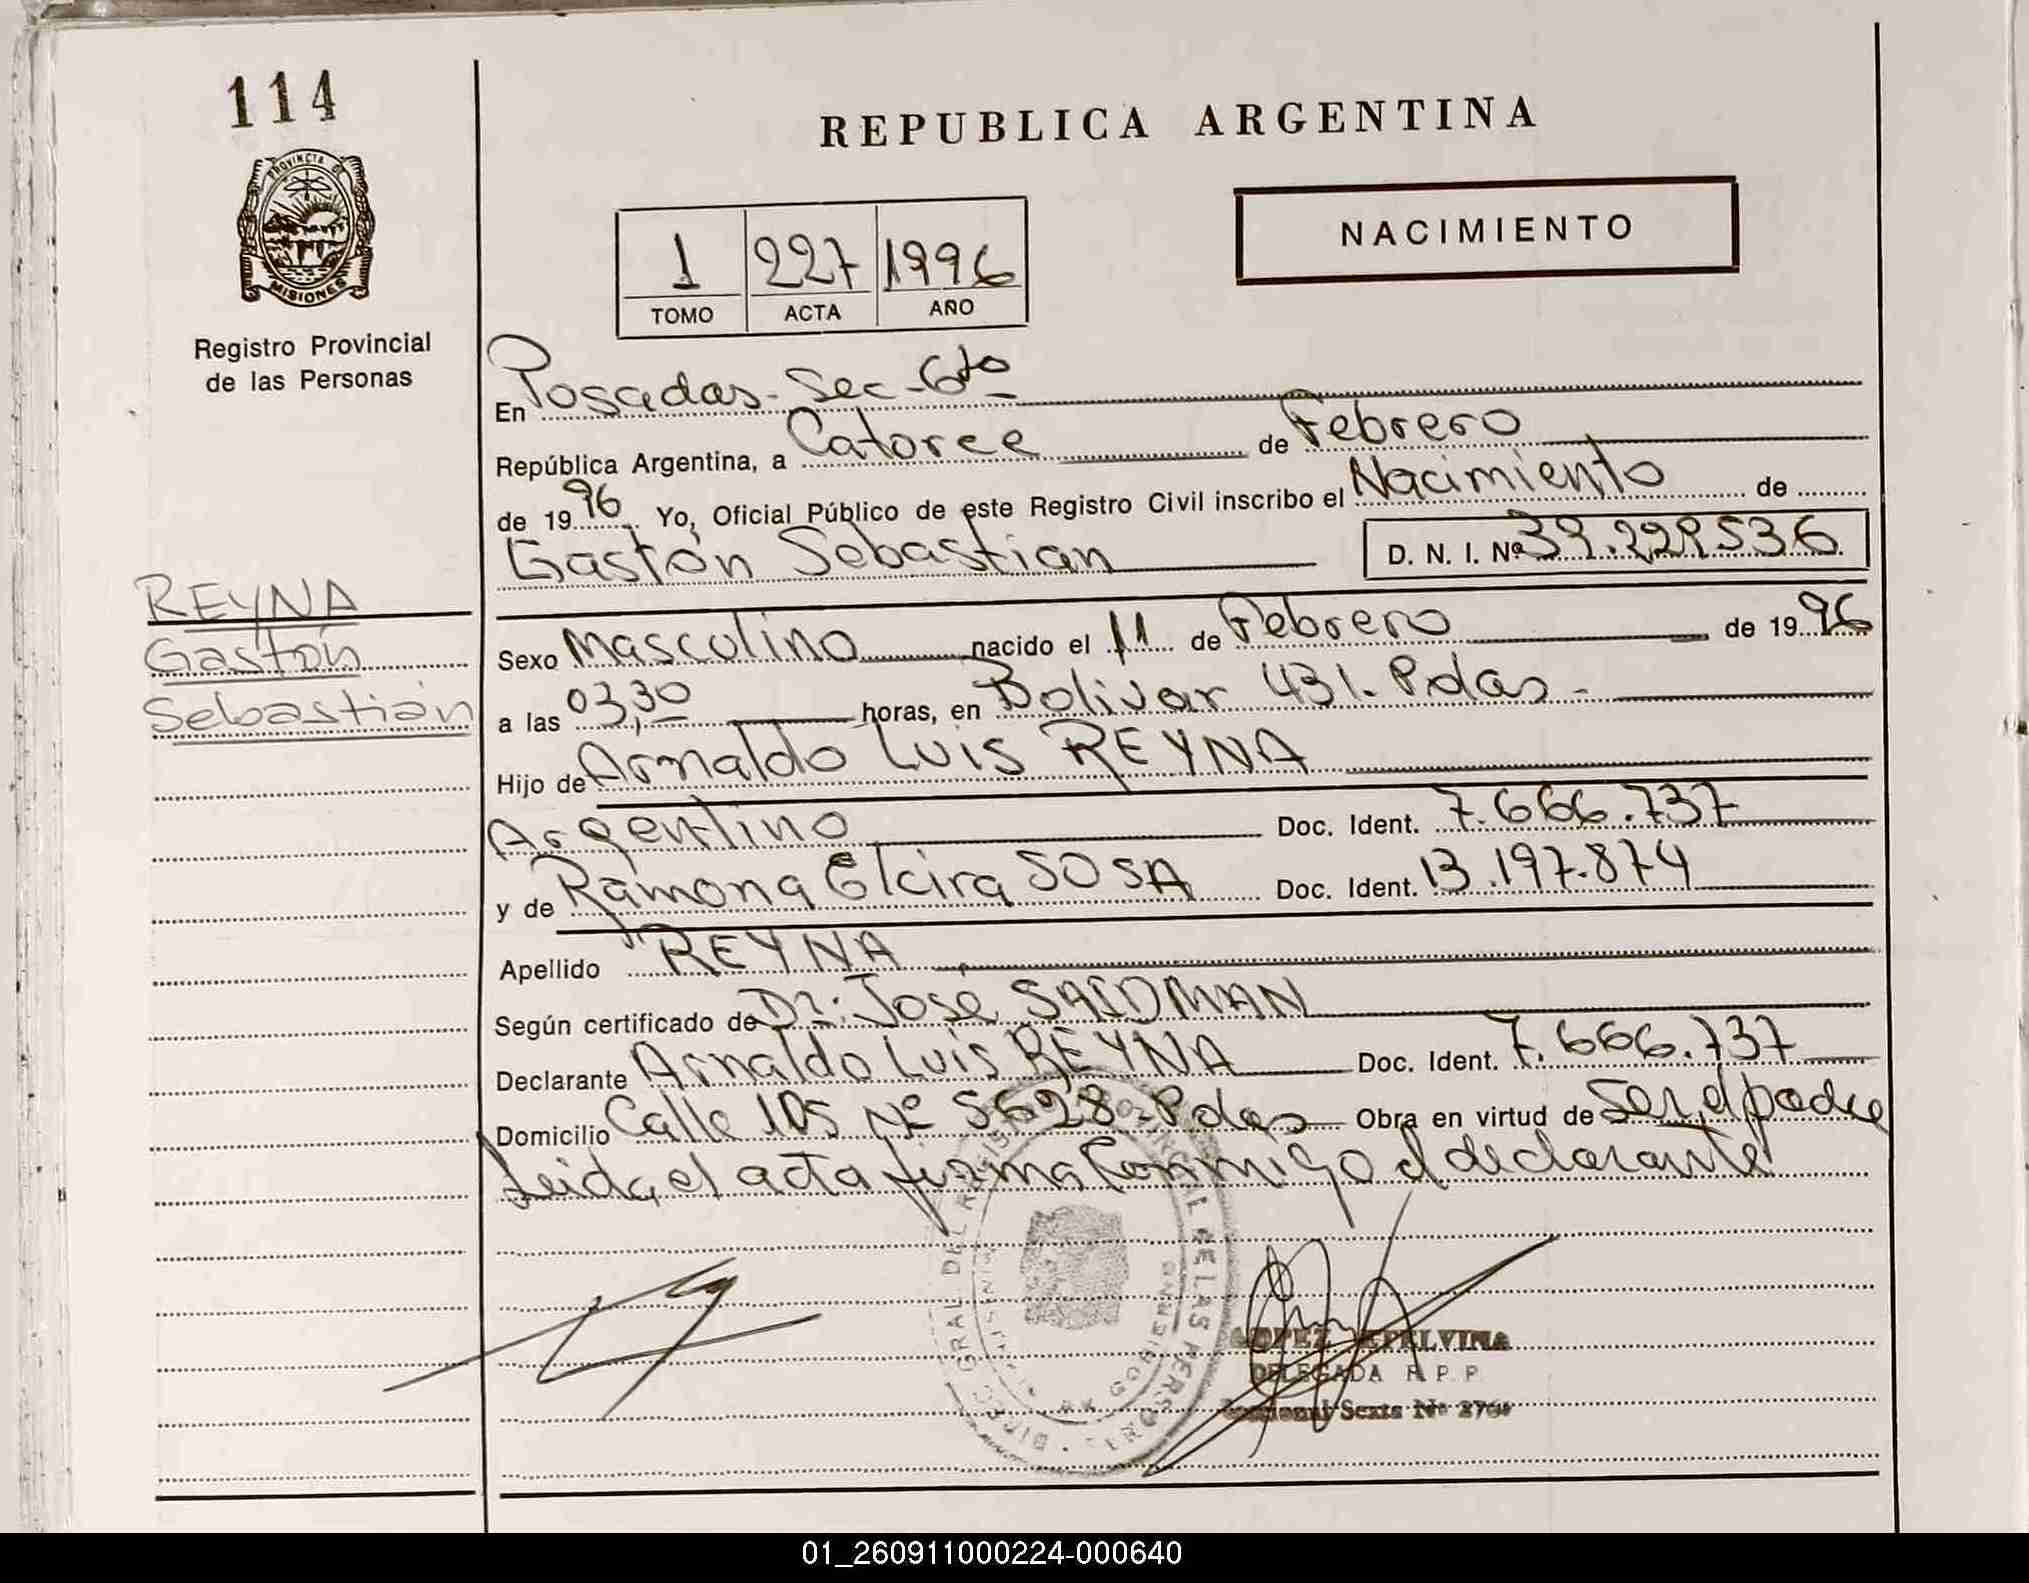 114
PROVINCIA DE
MISIONES
Registro Provincial
de las Personas
REPUBLICA ARGENTINA
NACIMIENTO
1 227 1996
TOMO ACTA AÑO
En Posadas - Sec - 6ta
República Argentina, a Catorce de Febrero
de 1996 Yo, Oficial Público de este Registro Civil inscribo el Nacimiento de
Gastón Sebastian D. N. I. Nº 39.229.536
REYNA
Gastón
Sebastián
Sexo Masculino nacido el 11 de Febrero de 1996
a las 03,30 horas, en Bolivar 431. Pdas -
Hijo de Arnaldo Luis REYNA
Argentino Doc. Ident. 7.666.737
y de Ramona Elcira SOSA Doc. Ident. 13.197.874
Apellido REYNA
Según certificado de Dr. Jose SAIDMAN
Declarante Arnaldo Luis REYNA Doc. Ident. 7.666.737
Domicilio Calle 105 Nº 5628 - Pdas Obra en virtud de ser el padre
Leida el acta firma conmigo el declarante
LOPEZ ETELVINA
DELEGADA R. P. P.
Seccional Sexta Nº
01_260911000224-000640